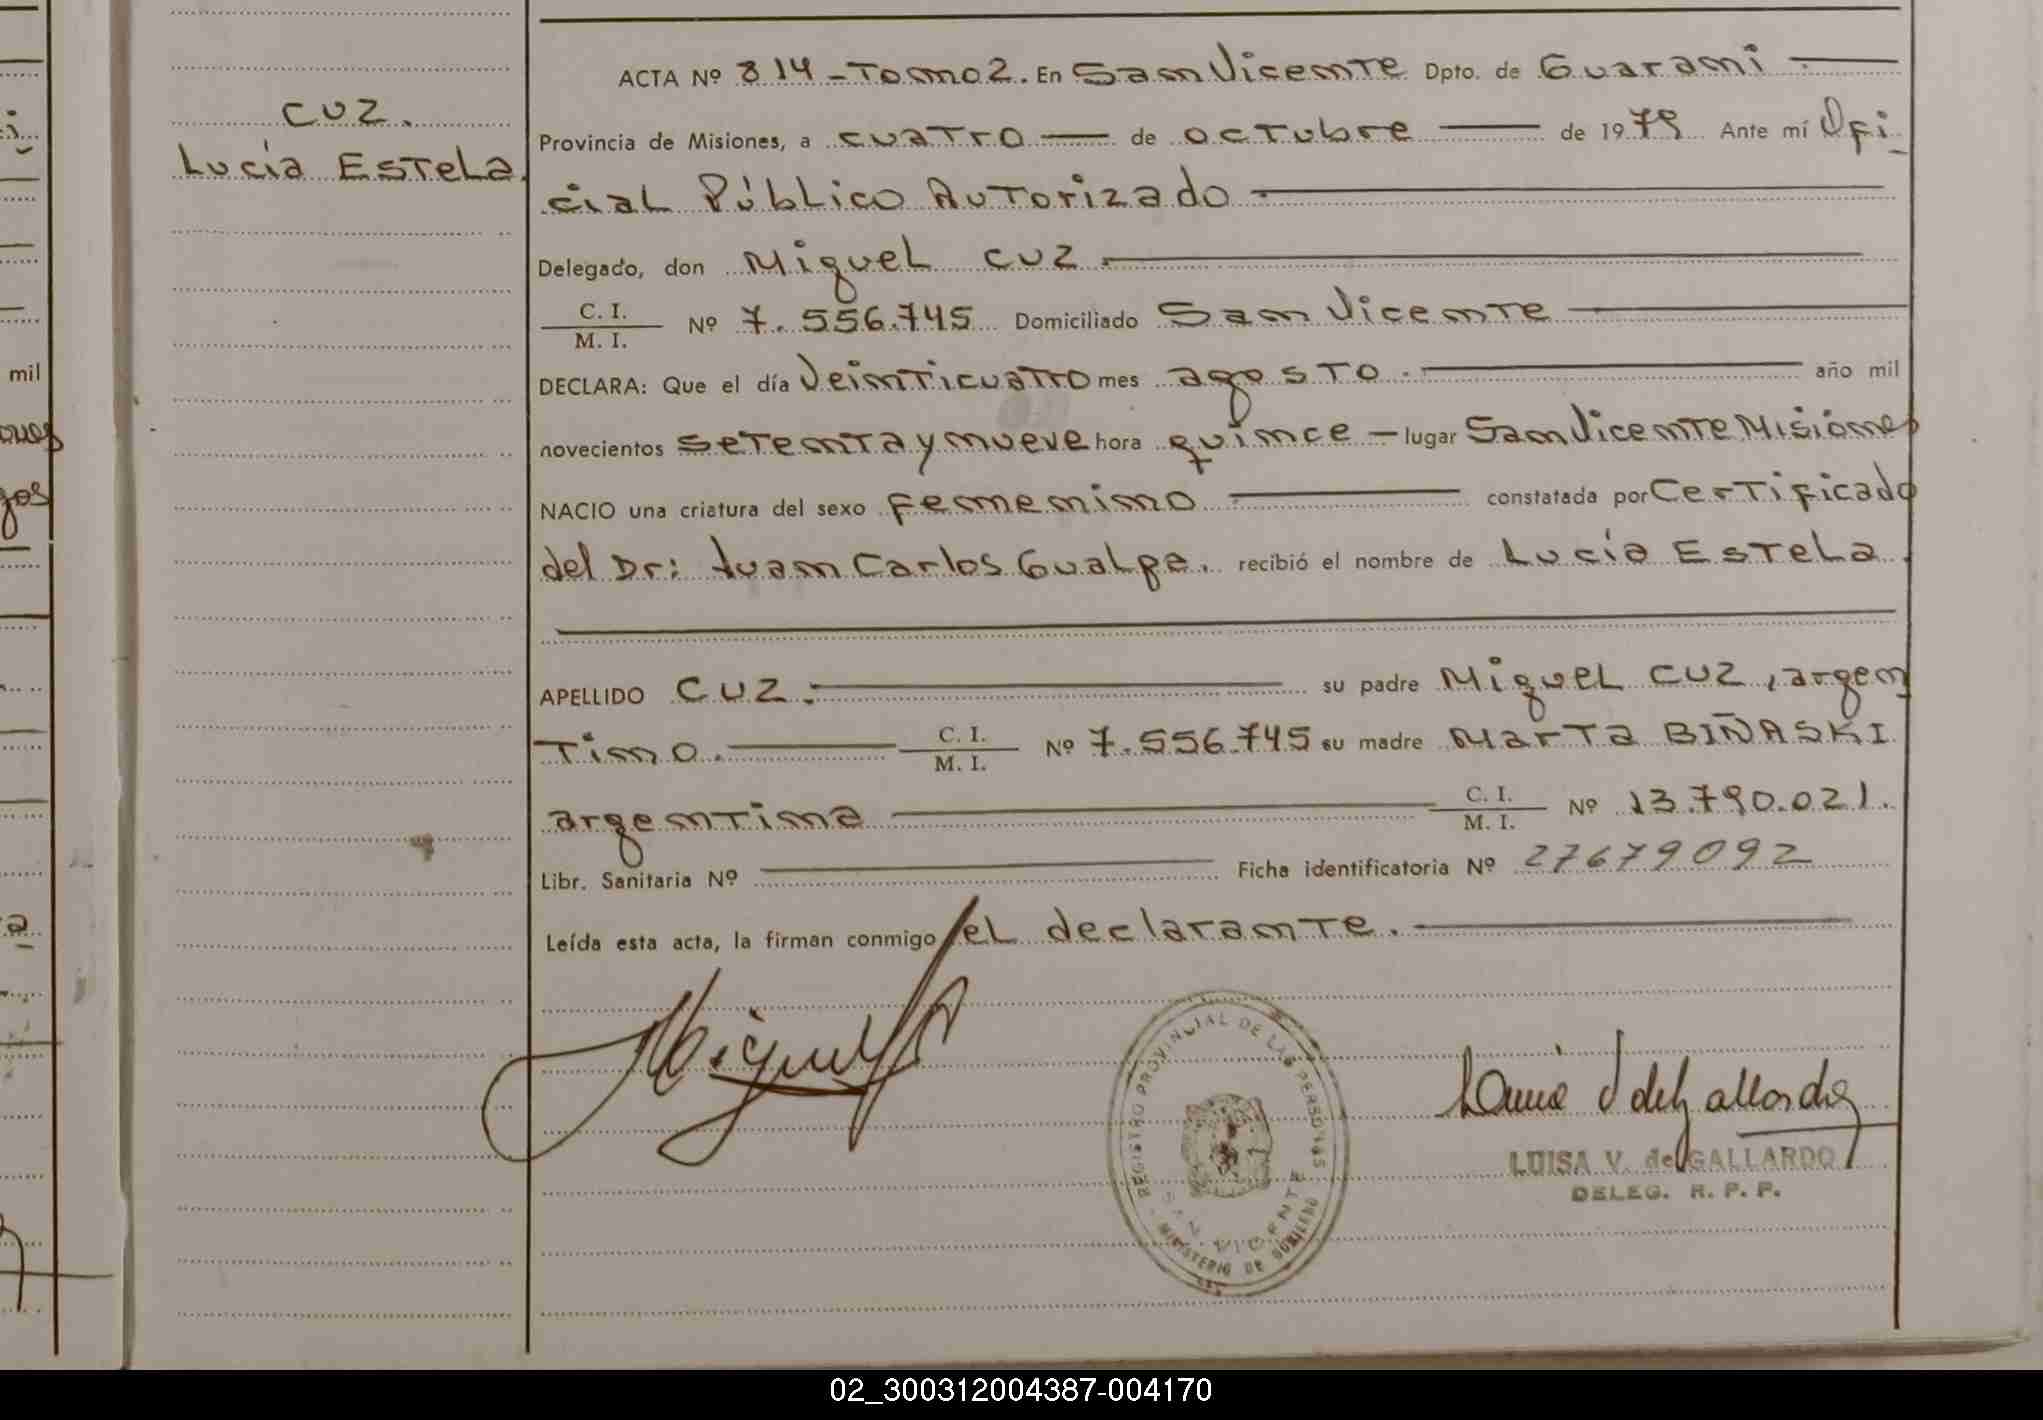 CUZ.
Lucía Estela.
ACTA Nº 314 - Tomo 2. En San Vicente Dpto. de Guaraní
Provincia de Misiones, a cuatro de octubre de 1979 Ante mí Ofi
cial Público Autorizado
Delegado, don Miguel CUZ
C. I.
M. I. Nº 7.556.745 Domiciliado San Vicente
DECLARA: Que el día Veinticuatro mes agosto. año mil
novecientos setenta y nueve hora quince - lugar San Vicente Misiones
NACIO una criatura del sexo femenino constatada por Certificado
del Dr: Juan Carlos Gualpe. recibió el nombre de Lucía Estela.
APELLIDO CUZ. su padre Miguel CUZ, argen
tino. C. I.
M. I. Nº 7.556.745 su madre Marta BIÑASKI
argentina C. I.
M. I. Nº 13.790.021.
Libr. Sanitaria Nº Ficha identificatoria Nº 27679092
Leída esta acta, la firman conmigo el declarante.
REGISTRO PROVINCIAL DE LAS PERSONAS
SAN VICENTE
MINISTERIO DE GOBIERNO
LUISA V. de GALLARDO
DELEG. R. P. P.
mil
02_300312004387-004170